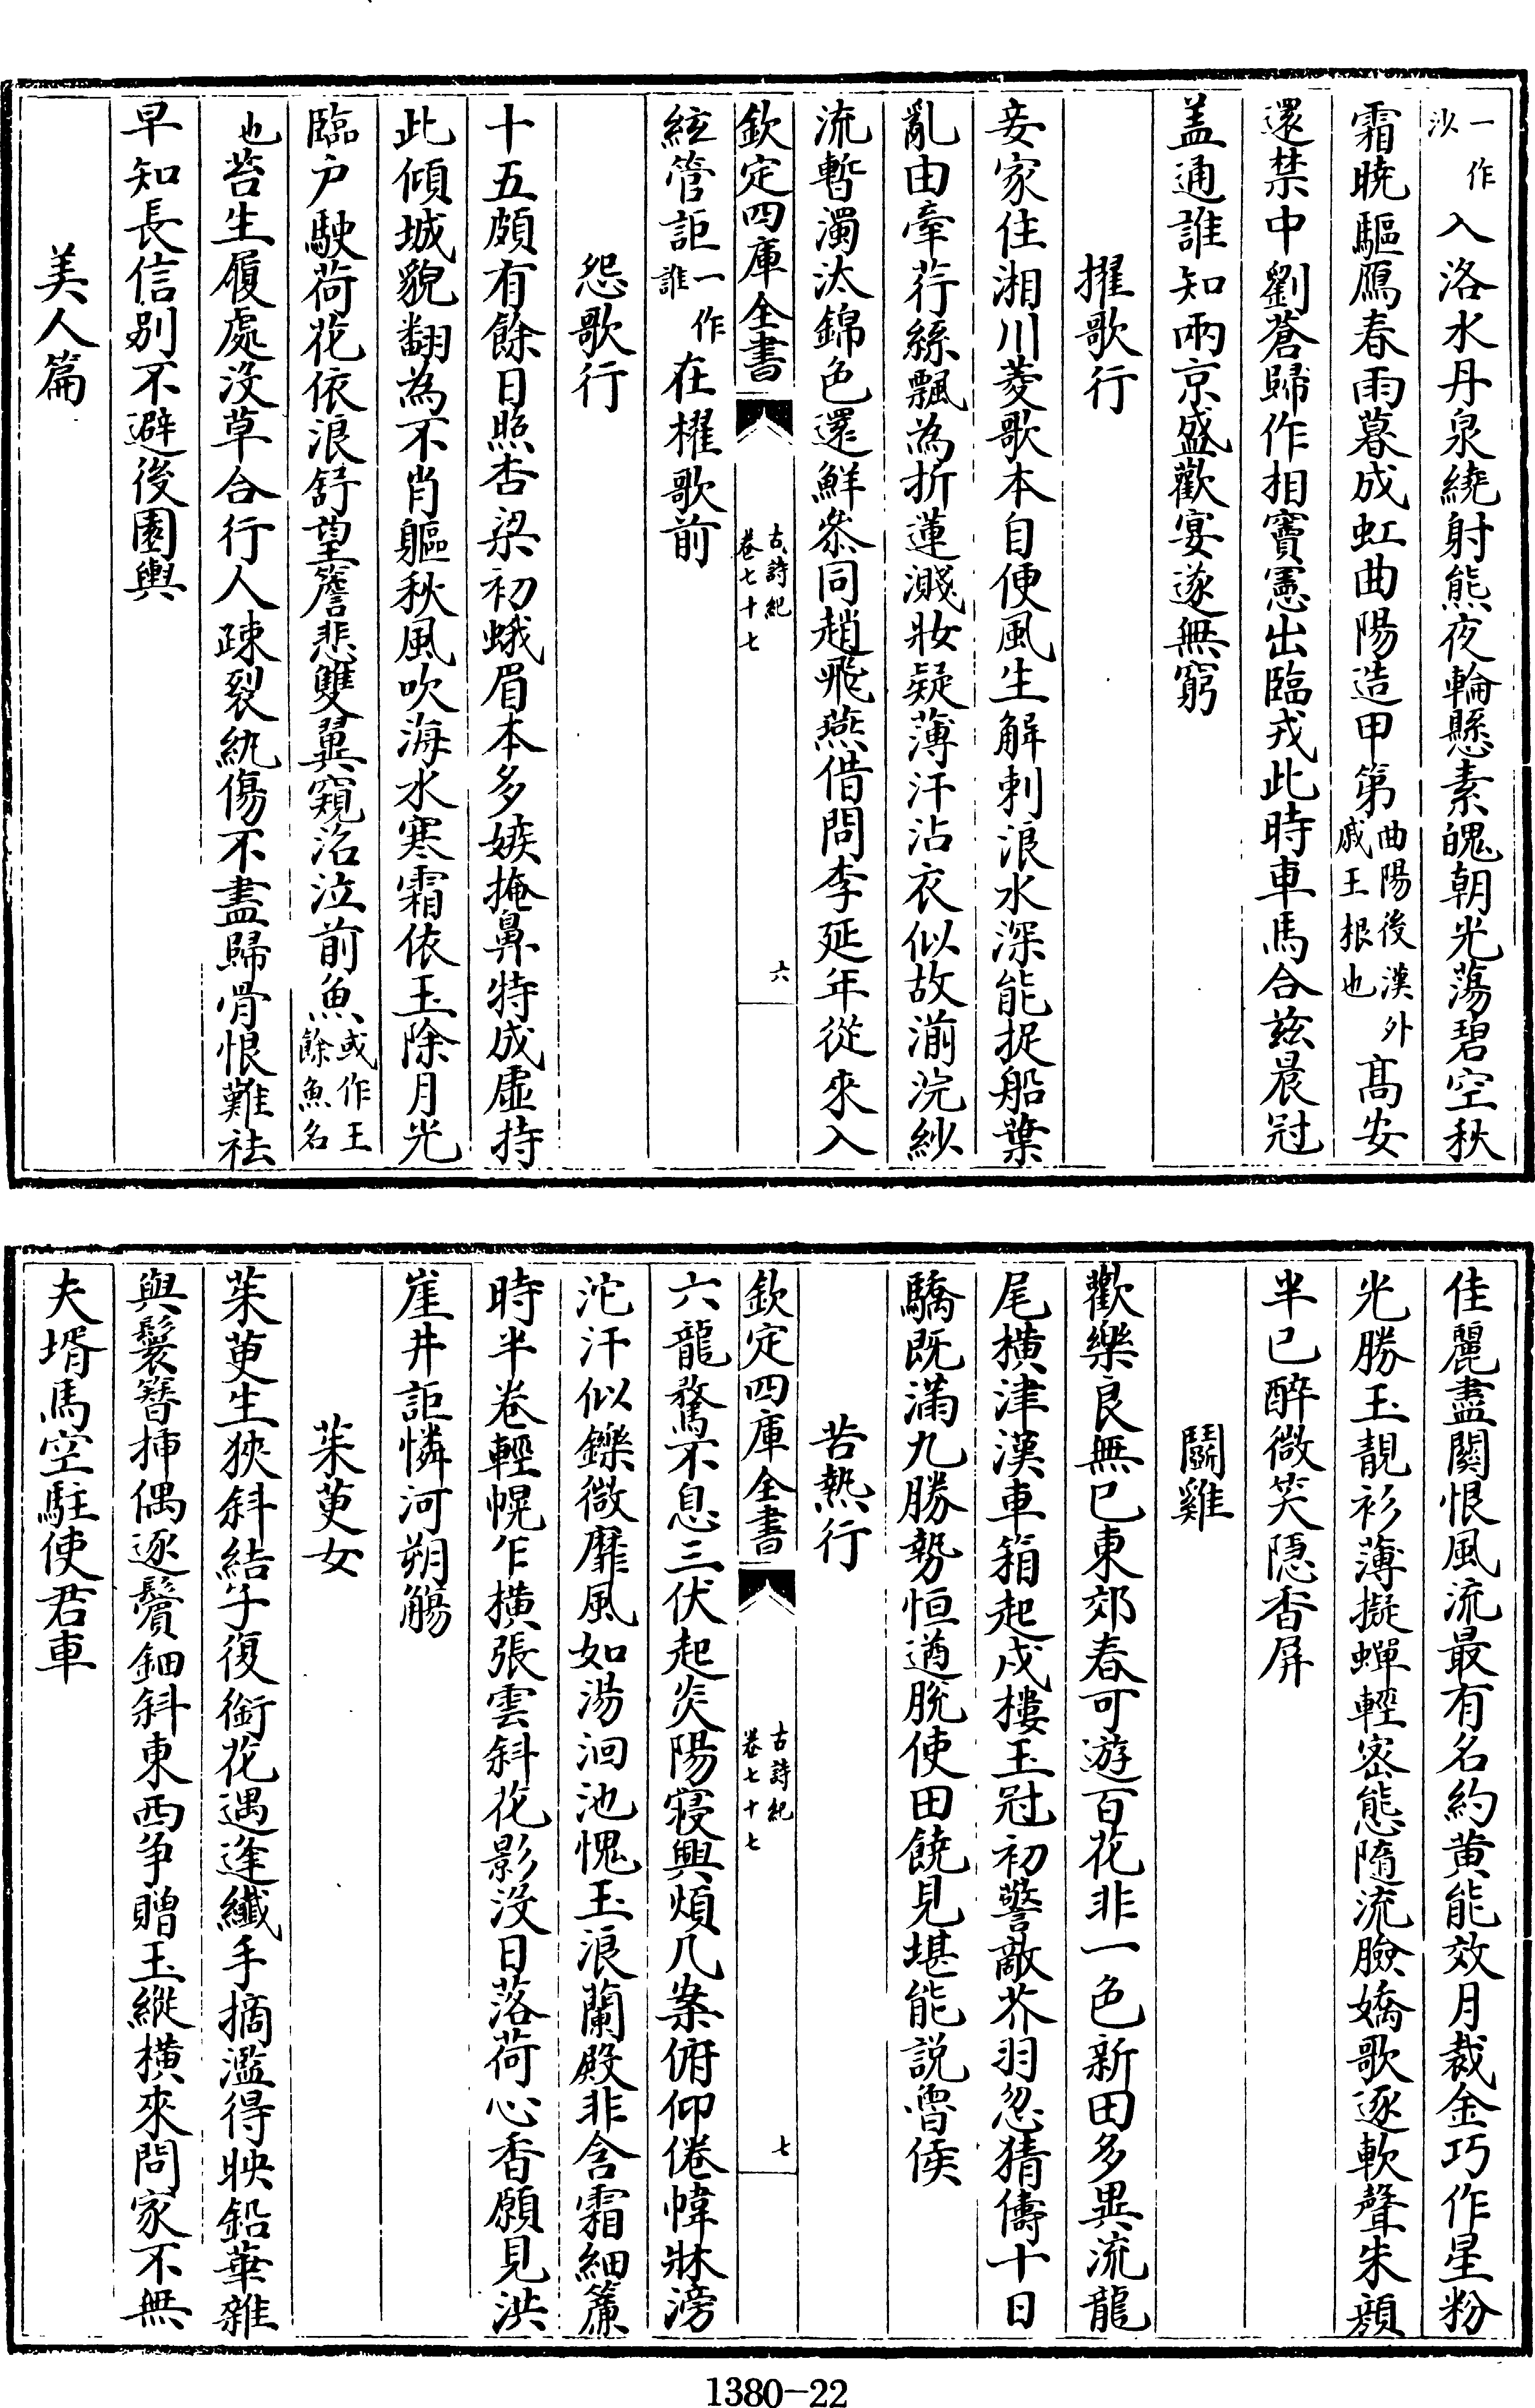 一作沙入洛水丹泉繞射熊夜輪懸素魄朝光蕩碧空秋
霜曉驅鴈春雨暮成虹曲陽造甲第曲陽後漢外戚王根也高安
還禁中劉蒼歸作相竇憲出臨戎此時車馬合兹晨冠
盖通誰知兩京盛歡宴遂無窮
擢歌行
妾家住湘川菱歌本自便風生解刺浪水深能捉船葉
亂由牽荇絲飄為折蓮濺妝疑薄汗沾衣似故湔浣紗
流暫濁汰錦色還鮮叅同趙飛燕借問李延年從來入
欽定四庫全書
古詩紀
卷七十七
六
絃管詎一作誰在櫂歌前
怨歌行
十五頗有餘日照杏梁初蛾眉本多嫉掩鼻特成虛持
此傾城貌翻為不肖軀秋風吹海水寒霜依玉除月光
臨户駛荷花依浪舒望簷悲雙翼窺沼泣前魚或作王餘魚名
也苔生履處没草合行人疎裂紈傷不盡歸骨恨難袪
早知長信别不避後園輿
美人篇
佳麗盡關恨風流最有名約黄能效月裁金巧作星粉
光勝玉靚衫薄擬蟬輕宻態隨流臉嬌歌逐軟聲朱顔
半已醉微笑隱香屏
鬭雞
歡樂良無已東郊春可遊百花非一色新田多異流龍
尾横津漢車箱起戍樓玉冠初警敵芥羽忽猜儔十日
驕既滿九勝勢恒遒脱使田饒見堪能説魯侯
苦熱行
欽定四庫全書
古詩紀
卷七十七
七
六龍騖不息三伏起炎陽寢興煩几案俯仰倦幃牀滂
沱汗似鑠微靡風如湯洄池愧玉浪蘭殿非含霜細簾
時半卷輕幌乍横張雲斜花影没日落荷心香願見洪
崖井詎憐河朔觴
茱萸女
茱萸生狹斜結子復銜花遇逢纖手摘濫得映鉛華雜
與鬟簪揷偶逐鬢鈿斜東西争贈玉縱横來問家不無
夫壻馬空駐使君車
1380-22